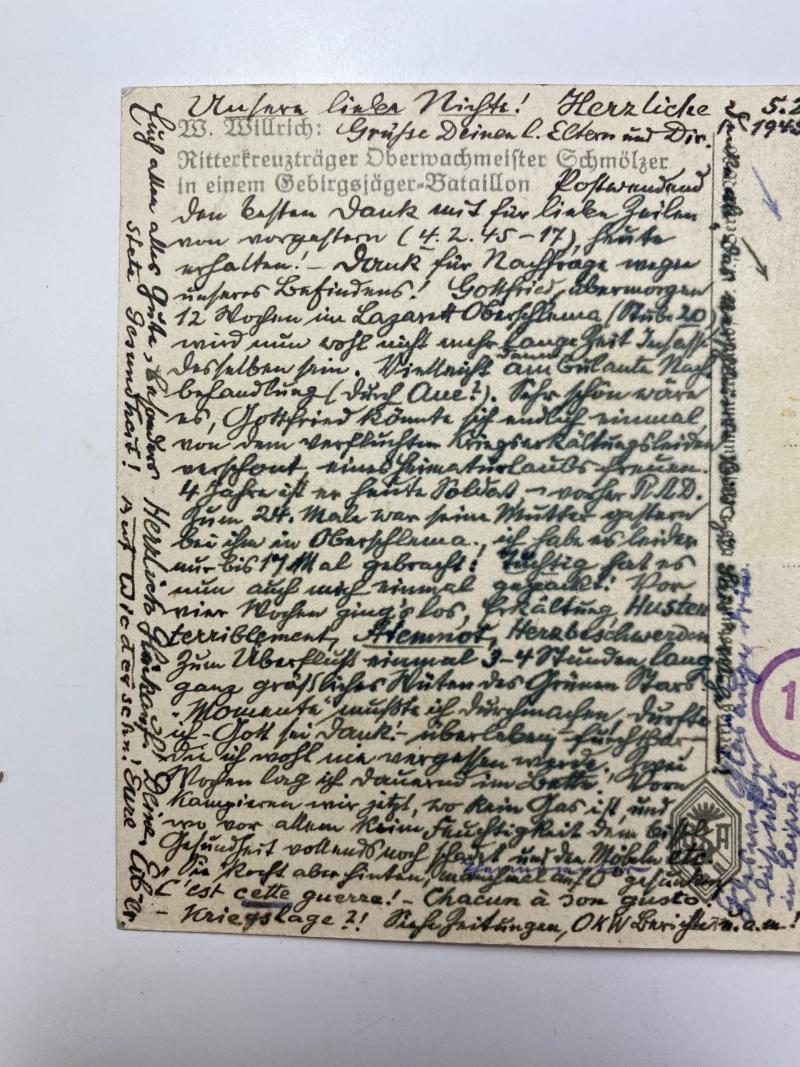 Unsere liebe Nichte! Herzliche
5.2.
1945
W. Willrich: Grüße Deinen l. Eltern und Dir.
Ritterkreuzträger Oberwachmeister Schmölzer
in einem Gebirgsjäger-Bataillon Postwendend
den besten Dank mit für liebe Zeilen
von vorgestern (4.2.45-17), heute
erhalten! – Dank für Nachfrage wegen
unseres Befindens! Gottfried, übermorgen
12 Wochen im Lazarett Oberschlema (Stube 20
wird nun wohl nicht mehr lange Zeit Insasse
desselben sein. Vielleicht dann ambulante Nach-
behandlung (durch Aue?). Sehr schön wäre
es, Gottfried könnte sich endlich einmal,
von dem verfluchten Kriegserkältungsleiden
verschont, eines Heimaturlaubs freuen.
4 Jahre ist er heute Soldat, – vorher R.A.D.
Zum 24. Male war seine Mutter gestern
bei ihm in Oberschlema, ich habe es leider
nur bis 17 Mal gebracht! Tüchtig hat es
nun auch mich einmal gepackt! Vor
vier Wochen ging's los, Erkältung, Husten
terriblement, Atemnot, Herzbeschwerden
Zum Überfluß einmal 3-4 Stunden lang
ganz gräßliches Wüten des Grünen Stars!
"Momente" mußte ich durchmachen, durfte
ich – Gott sei Dank! – überleben, furchtbar
die ich wohl nie vergessen werde. Zwei
Wochen lag ich dauernd im Bette! Vorn
kampieren wir jetzt, wo kein Gas ist, und
wo vor allem keine Feuchtigkeit dem bißl
Gesundheit vollends noch schadet und den Möbeln etc.
Sie kocht aber hinten, manchmal auf 0° gesunken
C'est cette guerre! – Chacun à son gusto!
– Kriegslage?! Siehe Zeitungen, OKW Berichte u.a.m!
Euch allen alles Gute, besonders
stete Gesundheit!
Herzlich
Auf Wiedersehn! Eure
Deine
1